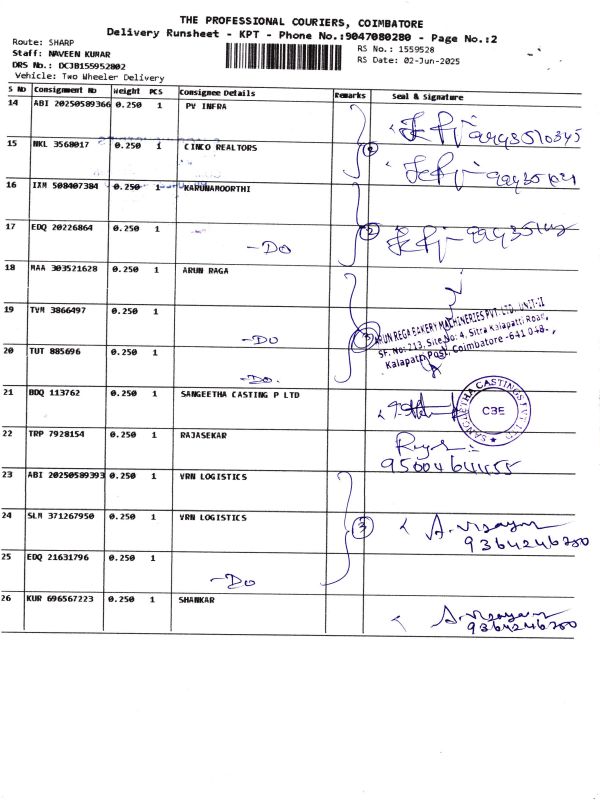 THE PROFESSIONAL COURIERS, COIMBATORE
Delivery Runsheet - KPT - Phone No.:9047080280 - Page No.:2
Route: SHARP
Staff: NAVEEN KUMAR
DRS No.: DCJB155952802
Vehicle: Two Wheeler Delivery
RS No.: 1559528
RS Date: 02-Jun-2025
S No Consignment No Weight PCS Consignee Details Remarks Seal & Signature
14 ABI 20250589366 0.250 1 PV INFRA
15 NKL 3568017 0.250 1 CINCO REALTORS 2
16 IXM 508407384 0.250 1 KARUNAMOORTHI
17 EDQ 20226864 0.250 1 -DO 2
18 MAA 303521628 0.250 1 ARUN RAGA
19 TVM 3866497 0.250 1 -DO 3
ARUN REGA BAKERY MACHINERIES PVT. LTD., UNIT-II
SF. No: 213, Site No: 4, Sitra Kalapatti Road,
Kalapatti Post, Coimbatore - 641 048.
20 TUT 885696 0.250 1 -DO.
21 BDQ 113762 0.250 1 SANGEETHA CASTING P LTD
SANGEETHA CASTINGS PVT LTD
CBE
22 TRP 7928154 0.250 1 RAJASEKAR
9500464455
23 ABI 20250589393 0.250 1 VRN LOGISTICS
24 SLM 371267950 0.250 1 VRN LOGISTICS 3 A. Vijayan
9364246700
25 EDQ 21631796 0.250 1 -DO
26 KUR 696567223 0.250 1 SHANKAR A. Vijayan
9364246700